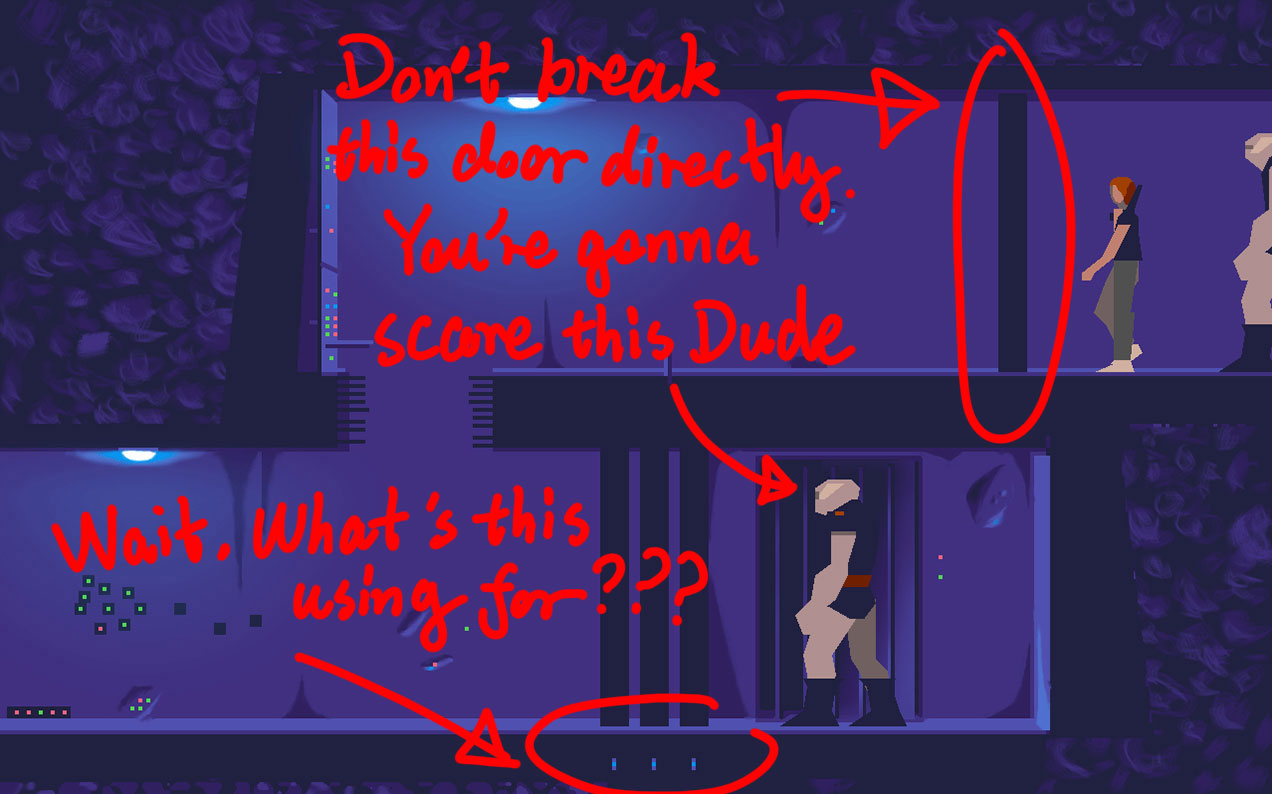 Don't break
this door directly.
You're gonna
scare this Dude
Wait. What's this
using for???